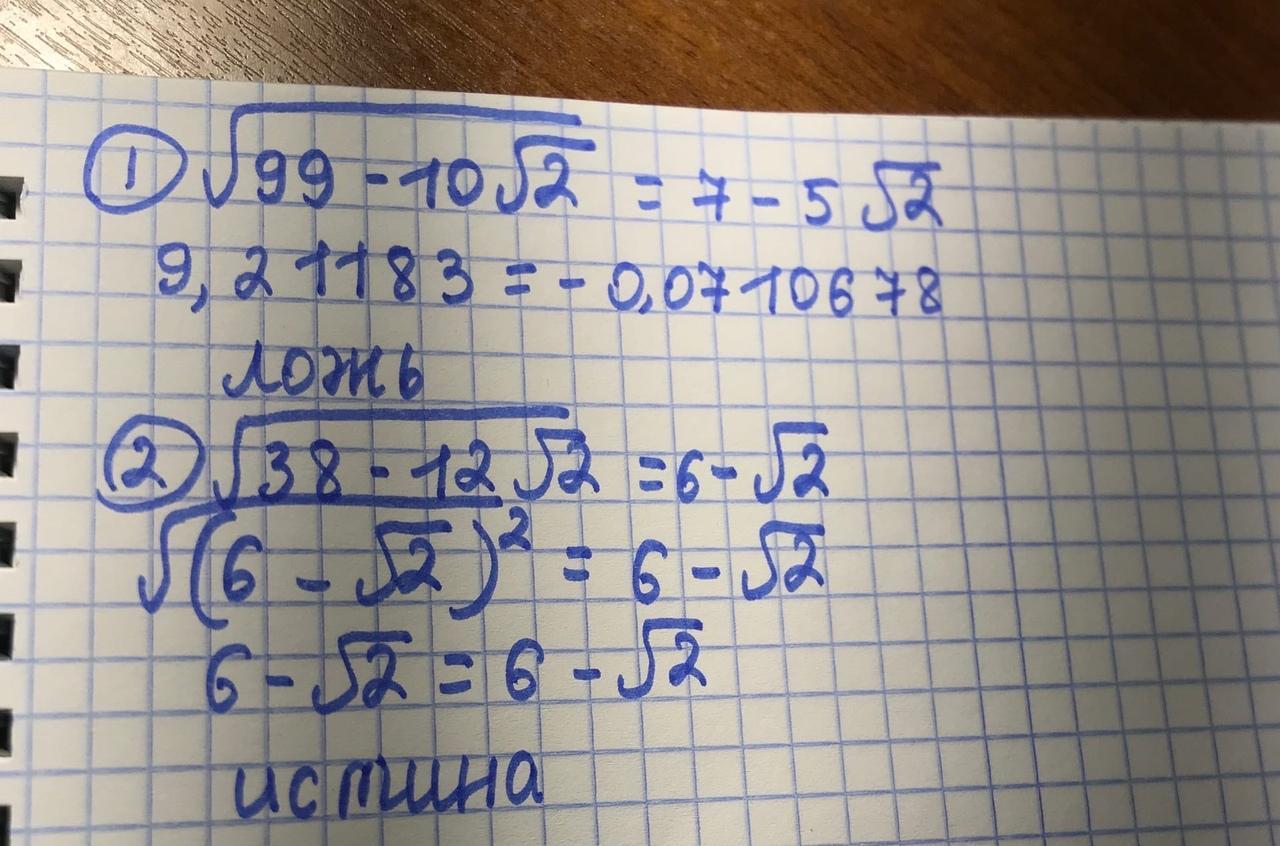 ① √99 - 10√2 = 7 - 5√2
9,21183 = - 0,0710678
ложь
② √38 - 12√2 = 6 - √2
√(6 - √2)² = 6 - √2
6 - √2 = 6 - √2
истина